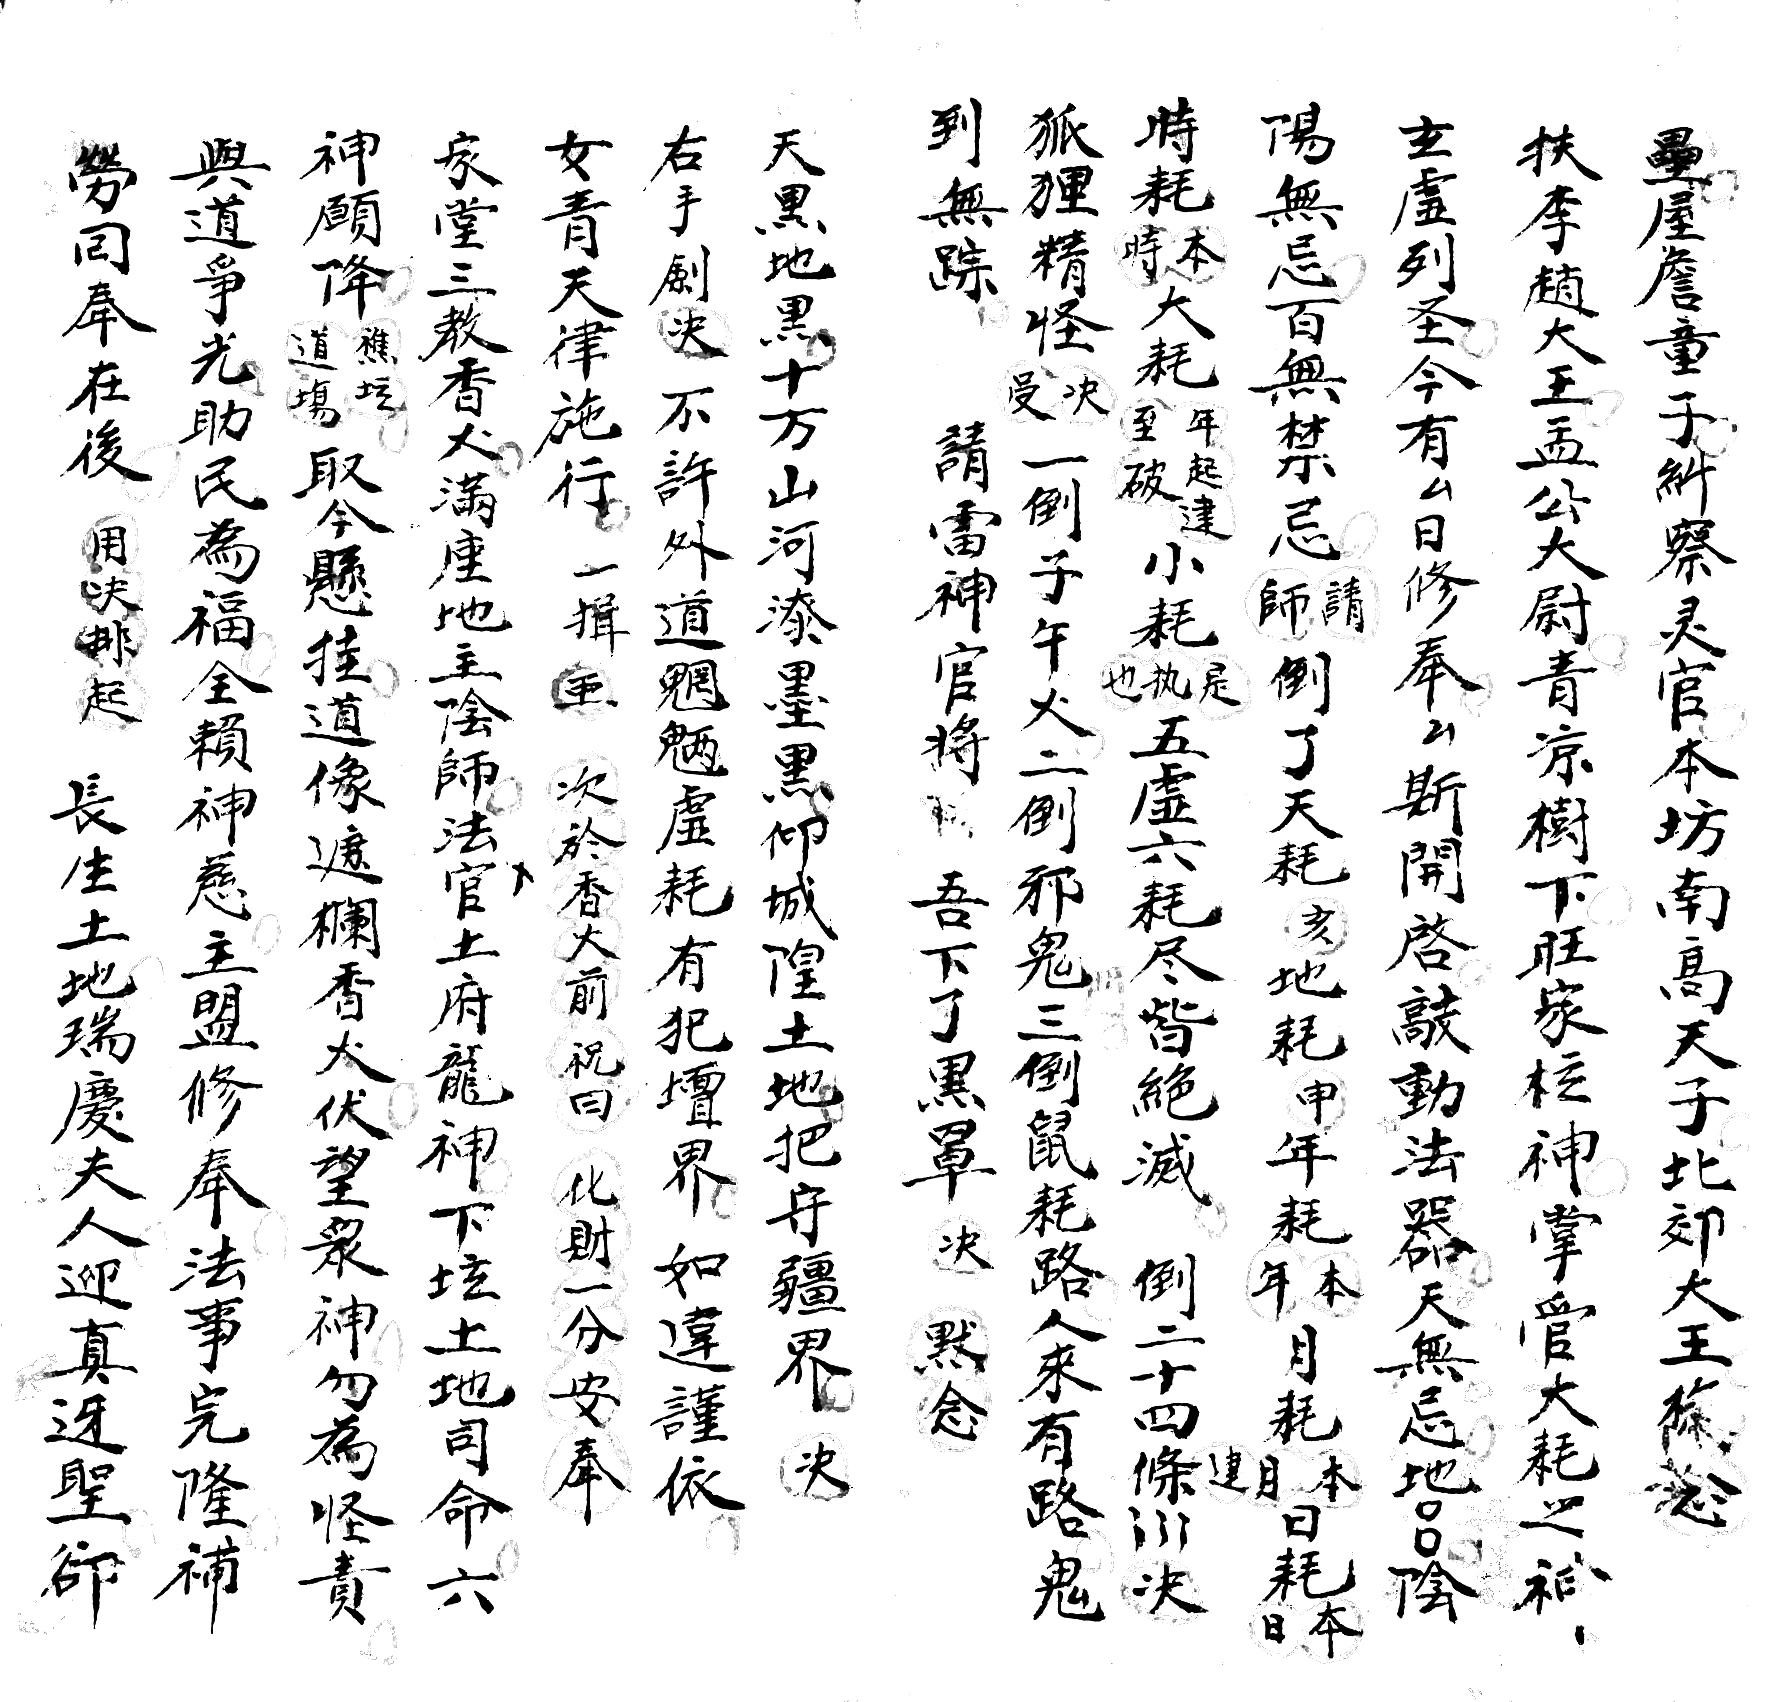 壘屋詹童子糾察灵官本坊南高天子北郊大王
扶李趙大王孟公大尉青凉樹下旺家枟神掌管大耗之神
玄虛列圣今有厶日修奉厶斯開啓敲動法器天無忌地吕陰
陽無忌百無禁忌請師倒了天耗亥地耗申年耗本年月耗本月建日耗本日
時耗本時大耗年起建至破小耗是执也五虛六耗尽皆絶滅 倒二十四條川决
狐狸精怪决受一倒子午火二倒邪鬼三倒鼠耗路人來有路鬼
到無踪 請雷神官將 吾下了黑罩决 默念
天黒地黒十万山河漆墨黒仰城隍土地把守疆界 决
右手劍决不許外道魍魎虛耗有犯壇界 如違謹依
女青天律施行 一揖 次於香火前祝曰 化財一分安奉
家堂三教香火滿座地主陰師法官土府龍神下坛土地司命六
神願降樵坛道塲取今懸挂道像遮欄香火伏望衆神勿為怪責
與道爭光助民為福全賴神慈主盟修奉法事完隆補
勞回奉在後 用决排起 長生土地瑞慶夫人迎真迓聖卻